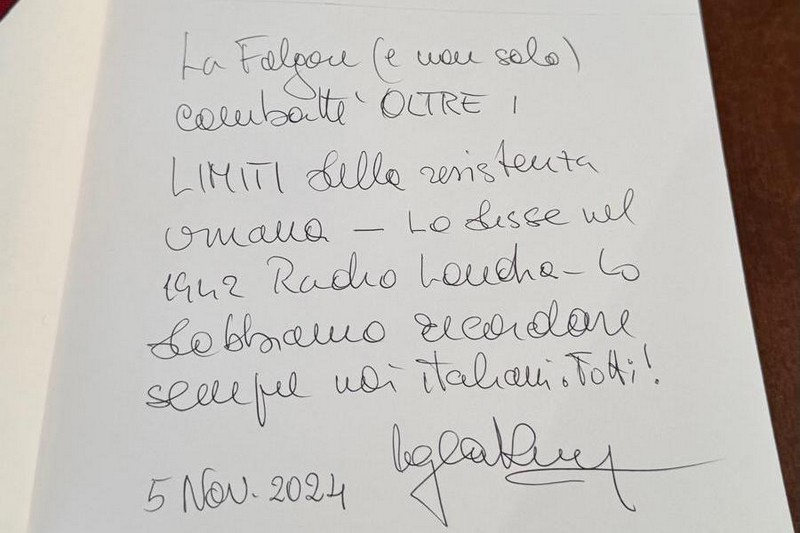 La Folgore (e non solo)
combatté OLTRE I
LIMITI della resistenza
umana – Lo disse nel
1942 Radio Londra – Lo
dobbiamo ricordare
sempre noi italiani. Tutti!
5 NOV. 2024